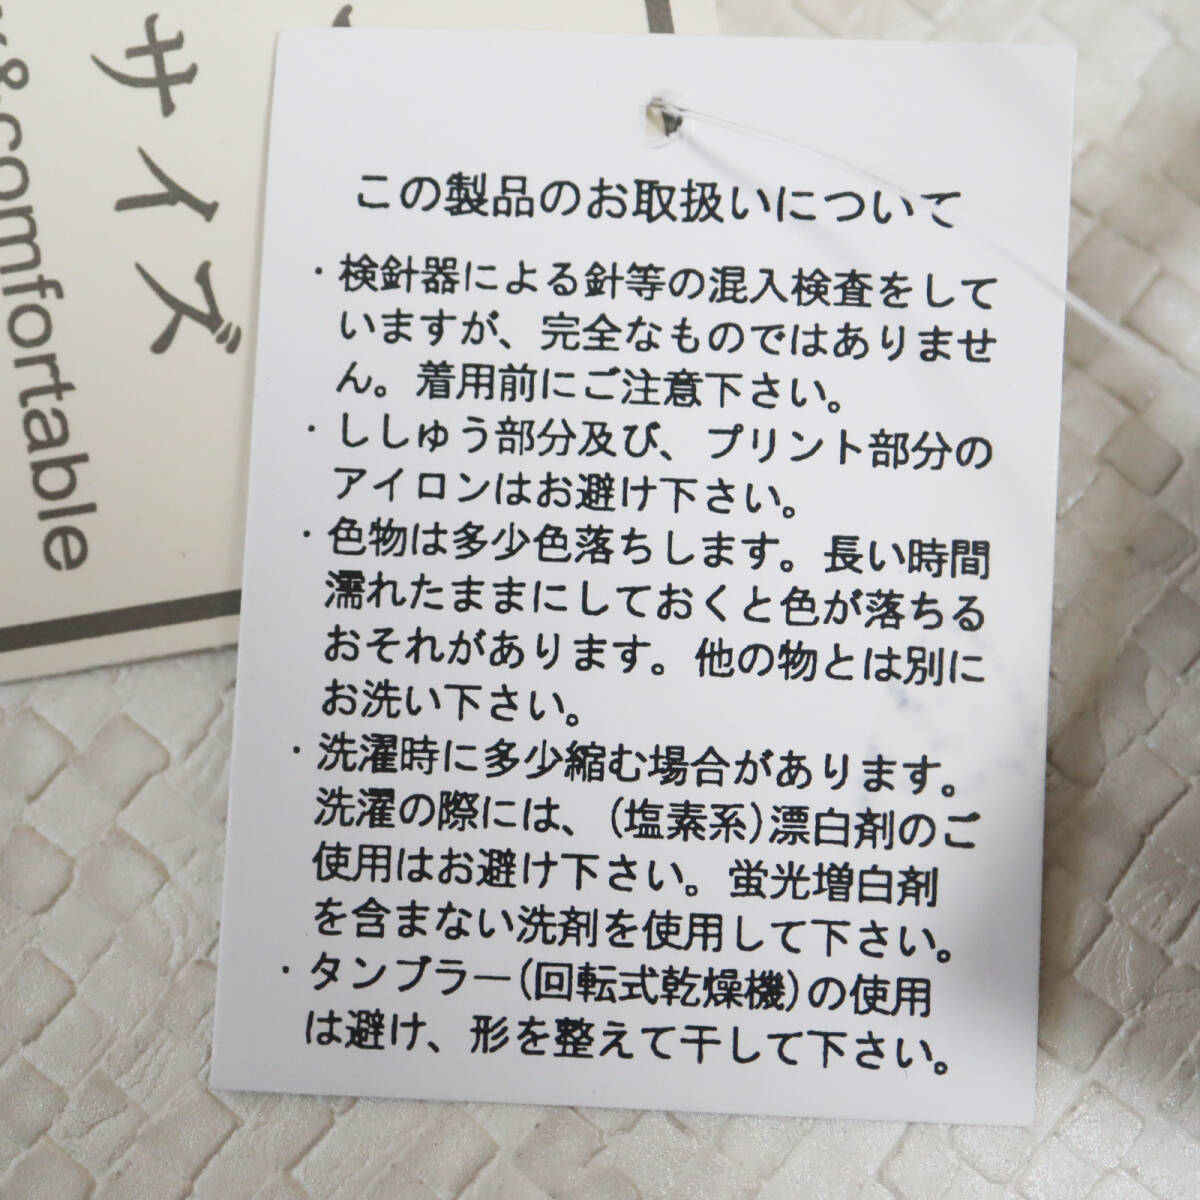 サイズ
&comfortable
この製品のお取扱いについて
・検針器による針等の混入検査をして
いますが、完全なものではありませ
ん。着用前にご注意下さい。
・ししゅう部分及び、プリント部分の
アイロンはお避け下さい。
・色物は多少色落ちします。長い時間
濡れたままにしておくと色が落ちる
おそれがあります。他の物とは別に
お洗い下さい。
・洗濯時に多少縮む場合があります。
洗濯の際には、(塩素系)漂白剤のご
使用はお避け下さい。蛍光増白剤
を含まない洗剤を使用して下さい。
・タンブラー(回転式乾燥機)の使用
は避け、形を整えて干して下さい。